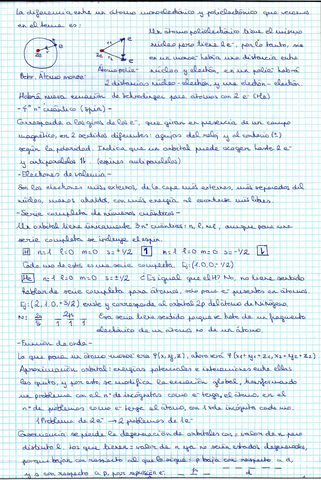 La diferencia entre un átomo monoelectrónico y polielectrónico que veremos
en el tema es:
Un átomo polielectrónico tiene el mismo
núcleo pero tiene 2 e⁻, por lo tanto, si
en un mono e⁻ había una distancia entre
núcleo y electrón, en un polie⁻ habrá
Átomo polie⁻
2 distancias núcleo-electrón, y una electrón-electrón.
Habrá nueva ecuación de Schrödinger para átomos con 2 e⁻ (He)
- 4º nº cuántico (spin) -
Corresponde a los giros de los e⁻, que giran en presencia de un campo
magnético, en 2 sentidos diferentes: agujas del reloj y al contrario (2)
según la polaridad. Indica que un orbital puede acoger hasta 2 e⁻
y antiparalelos 1↓. (espines antiparalelos)
- Electrones de valencia -
Son los electrones más externos, de la capa más externa, más separados del
núcleo, menos atraídos, con más energía al sentirse más libres.
- Serie completa de números cuánticos -
Un orbital tiene únicamente 3 nº cuánticos: n, l, ml, aunque para una
serie completa se incluye el espín.
H n=1 l=0 m=0 s=+1/2 n=1 l=0 m=0 s=-1/2
Cada uno de esto es una serie completa. Ej: (1,0,0,-1/2)
He n=1 l=0 m=0 s=±1/2 ¿Es igual que el H? No, no tiene sentido
hablar de serie completa para átomos, solo para e⁻ presentes en átomos.
Ej: (2,1,0,-1/2) existe y corresponde al orbital 2p del átomo de Nitrógeno
N: 2s 2p Esa serie tiene sentido porque se trata de un fragmento
electrónico de un átomo no de un átomo.
- Función de onda -
Lo que para un átomo mono e⁻ era Ψ(x,y,z), ahora será Ψ(x₁,y₁,z₁,x₂,y₂,z₂)
Aproximación orbital: energías potenciales e interacciones entre ellas
las quito, y por esto se modifica la ecuación global, transformando
un problema con el nº de incógnitas como e⁻ tenga el átomo, en el
nº de problemas como e⁻ tenga el átomo, con 1 sola incógnita cada uno.
1 Problema de 2 e⁻ → 2 problemas de 1 e⁻
Consecuencia: se pierde la degeneración de orbitales con = valor de n pero
distinto l. Los que tienen = valor de n ya no serán estados degenerados,
porque bajan con respecto al que lo sigue: p baja con respecto a d,
y s con respecto a p, por ejemplo: